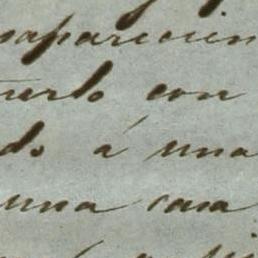 saparicion
uerto con
do á una
una casa